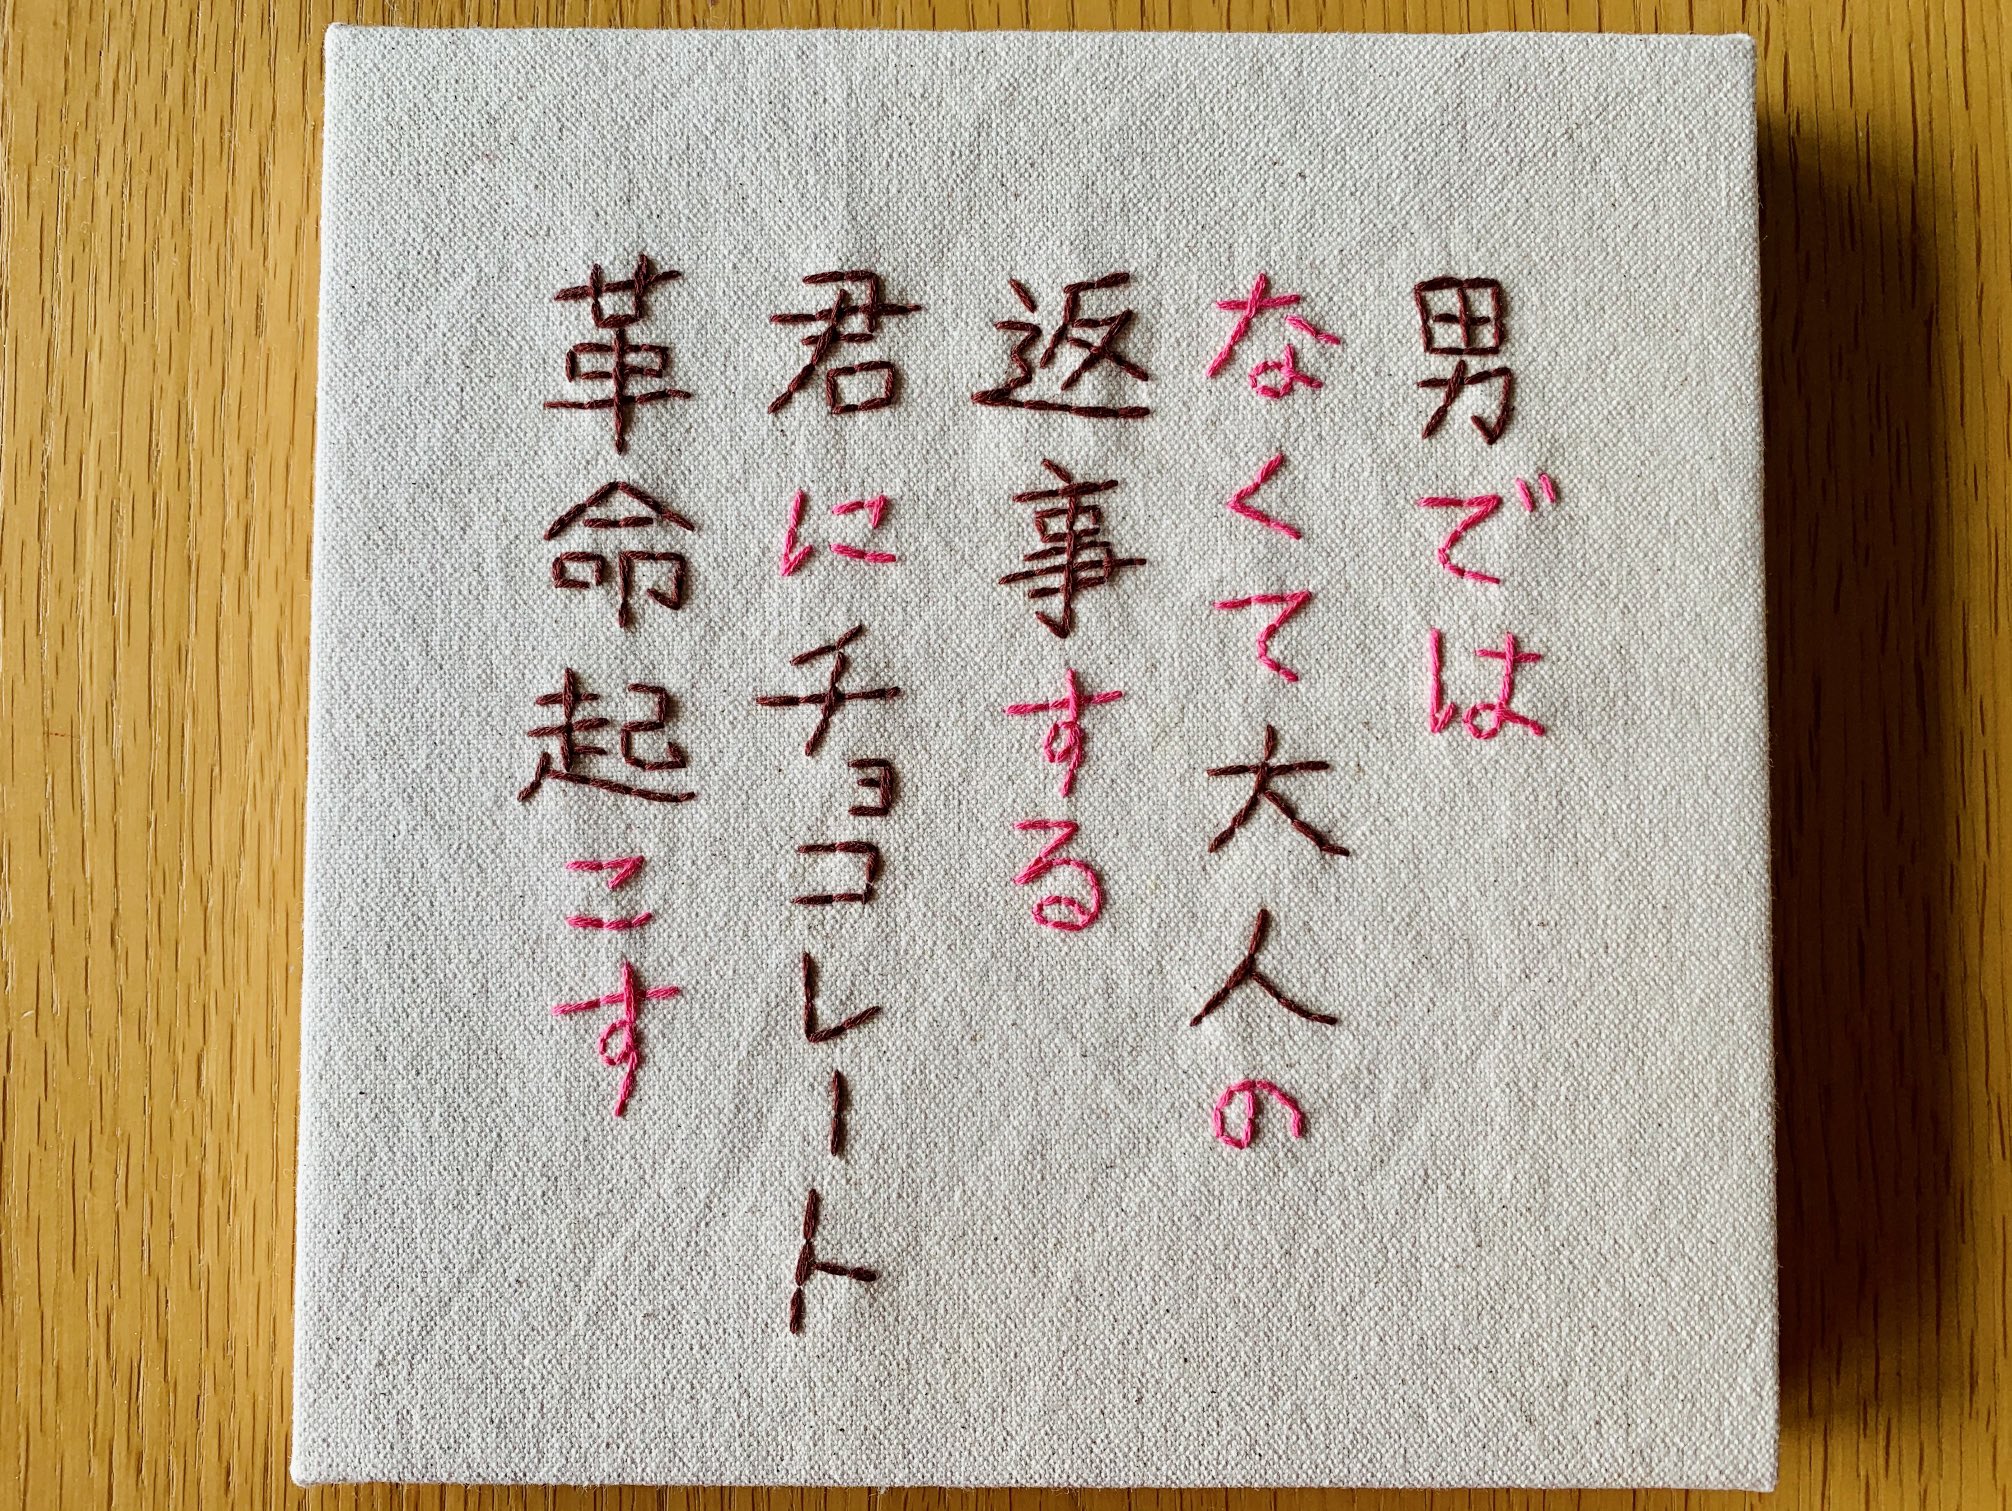 男では
なくて大人の
返事する
君にチョコレート
革命起こす